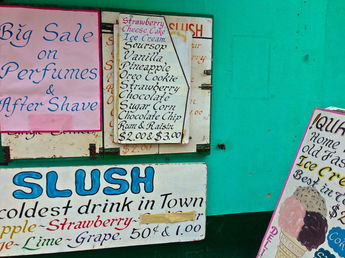 Big Sale
on
Perfumes
&
After Shave
SLUSH
Strawberry
Cheese Cake
Ice Cream
Soursop
Vanilla
Pineapple
Oreo Cookie
Strawberry
Chocolate
Sugar Corn
Chocolate Chip
Rum & Raisin
$2.00 & $3.00
$2.00 & $3.00
SLUSH
coldest drink in Town
Strawberry
Lime-Grape. 50¢ & 1.00
Home
old Fas
Ice Crea
Best in
$2